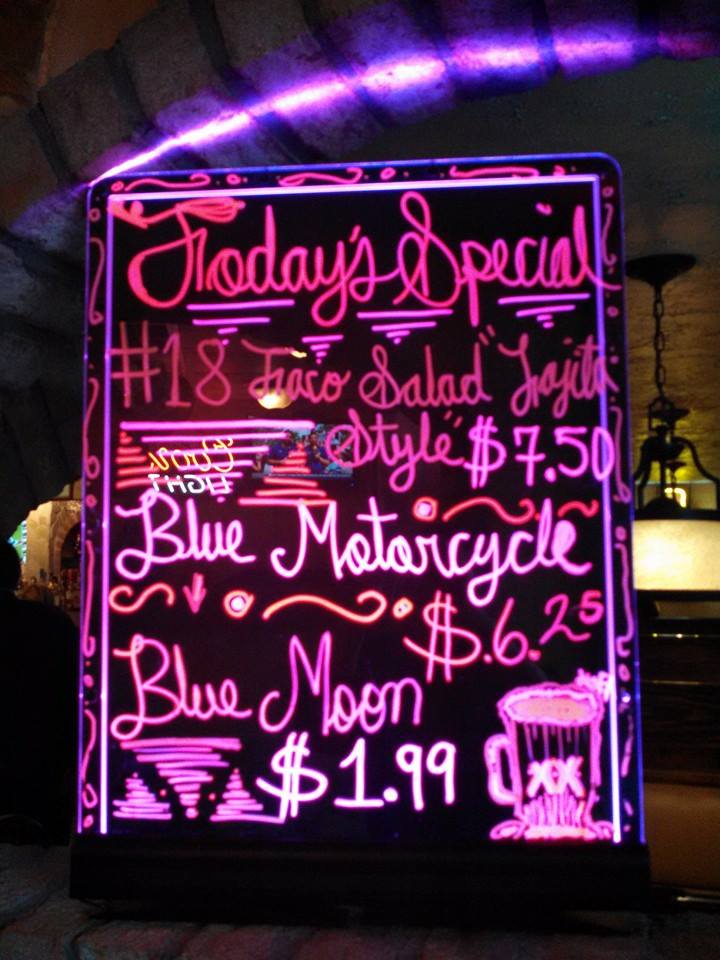 Today's Special
#18 Taco Salad "Fajita
Style" $7.50
Blue Motorcycle
$.6.25
Blue Moon
$1.99
XX
LIGHT